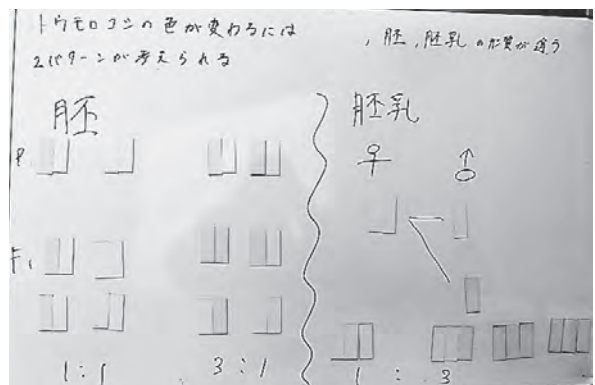 トウモロコシの色が変わるには
2パターンが考えられる
, 胚, 胚乳の形質が違う
胚
P.
F₁
1:1
3:1
胚乳
♀ ♂
1 : 3